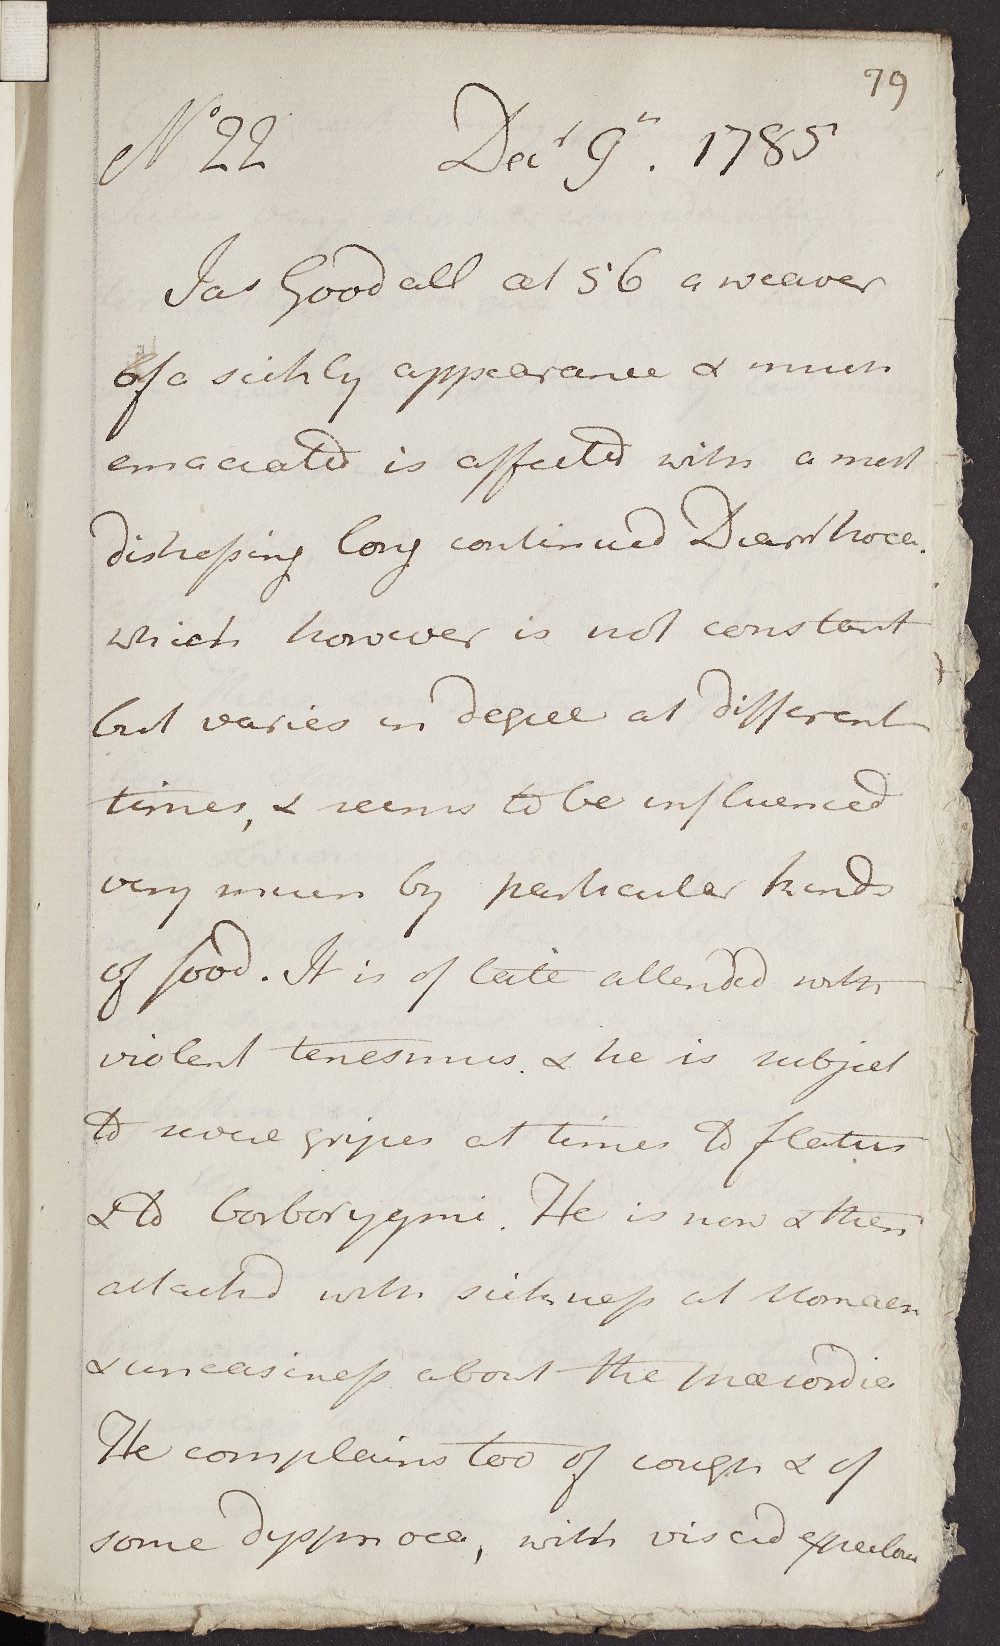 79
No 22 Decr 9th. 1785
Jas Goodall æt 56 a weaver
Of a sickly appearance & much
emaciated is affected with a most
distressing long continued Diarrhoea.
which however is not constant
but varies in degree at different
times, & seems to be influenced
very much by particular kinds
of food. It is of late attended with
violent tenesmus. & he is subject
to severe gripes at times to flatus
& to borborygmi. He is now & then
attacked with sickness at stomach
& uneasiness about the præcordia
He complains too of cough & of
some dyspnoea, with viscid